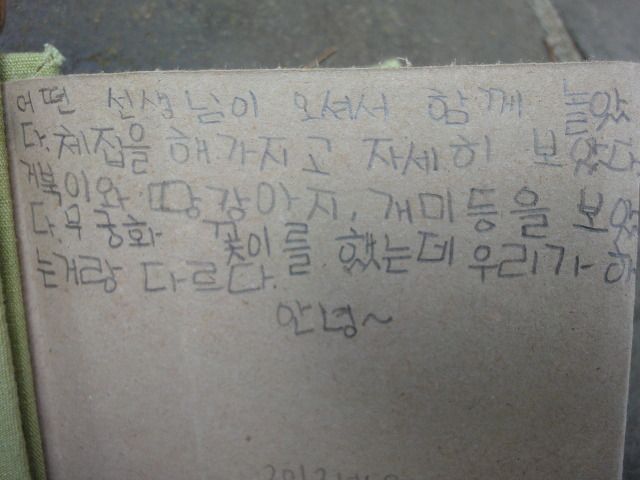 어떤 선생님이 오셔서 함께 놀았
다. 체집을 해가지고 자세히 보았다.
거북이와 땅강아지, 개미등을 보았
다. 무궁화 꽃이를 했는데 우리가 하
는거랑 다르다.
안녕~